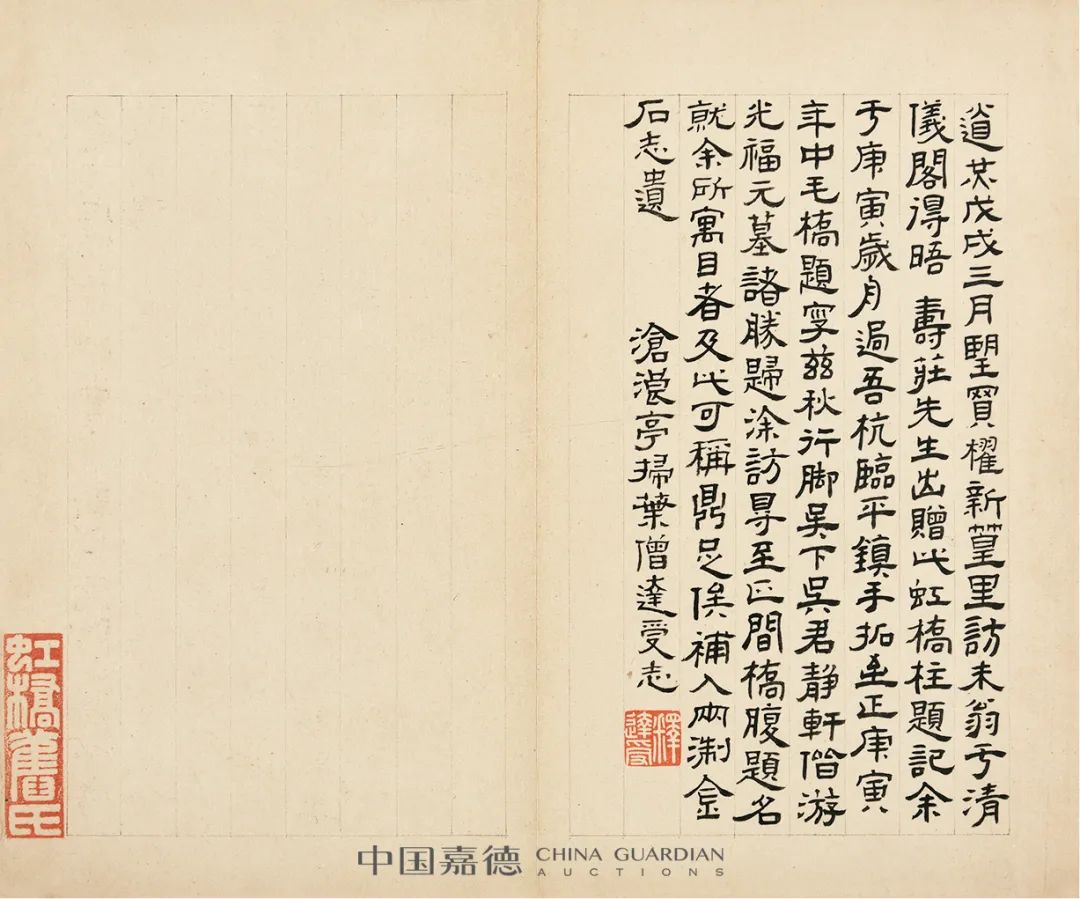 道光戊戌三月望買櫂新篁里訪未翁于清
儀閣得晤 壽莊先生出贈此虹橋柱題記余
于庚寅歲月過吾杭臨平鎮手拓至正庚寅
年中毛橋題字茲秋行脚吳下吳君静軒偕游
光福元墓諸勝歸涂訪尋至正間橋腹題名
就余所寓目者及此可稱鼎足俟補入兩浙金
石志遺
滄浪亭掃葉僧達受志
釋達受
虹橋舊氏
中国嘉德
CHINA GUARDIAN
AUCTIONS